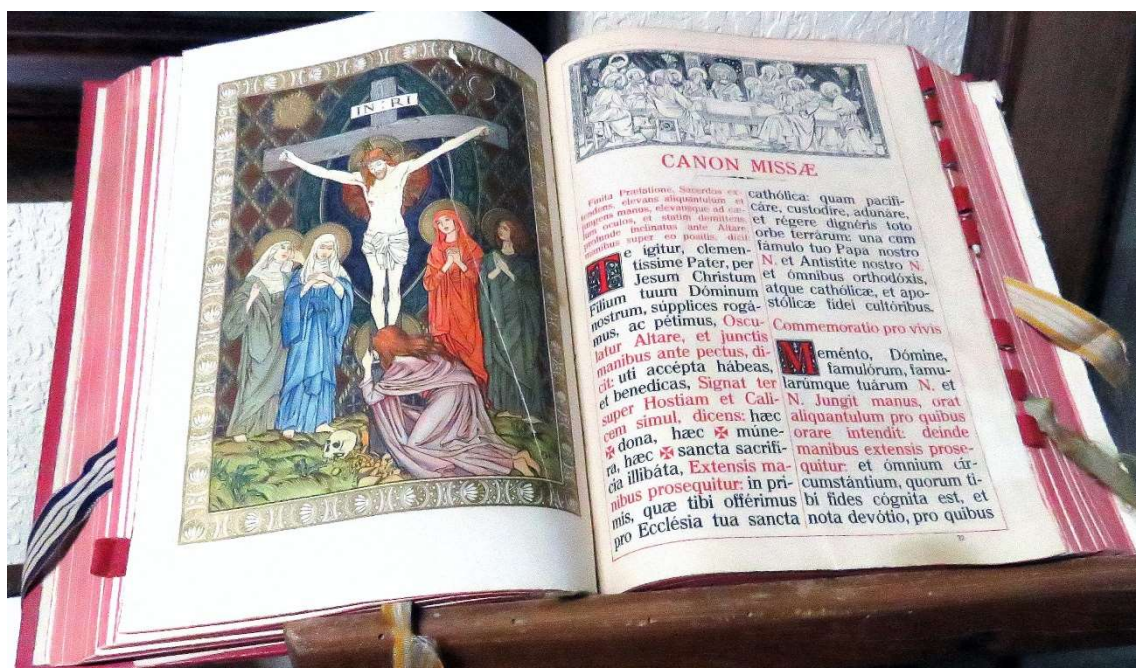 IN:RI
CANON MISSÆ
Finita Præfatione, Sacerdos ex-
tendens, elevans aliquantulum et
jungens manus, elevatisque ad cæ-
lum oculos, et statim demittens,
profunde inclinatus ante Altare
manibus super eo positis, dicit
Te igitur, clemen-
tissime Pater, per
Jesum Christum
Fílium tuum Dóminum
nostrum, súpplices rogá-
mus, ac pétimus, Oscu-
latur Altare, et junctis
manibus ante pectus, di-
cit: uti accépta hábeas,
et benedícas, Signat ter
super Hostiam et Cali-
cem simul, dicens: hæc
✠ dona, hæc ✠ múne-
ra, hæc ✠ sancta sacrifí-
cia illibáta, Extensis ma-
nibus prosequitur: in pri-
mis, quæ tibi offérimus
pro Ecclésia tua sancta
cathólica: quam pacifi-
cáre, custodíre, adunáre,
et régere dignéris toto
orbe terrárum: una cum
fámulo tuo Papa nostro
N. et Antístite nostro N.
et ómnibus orthodóxis,
atque cathólicæ, et apo-
stólicæ fídei cultóribus.
Commemoratio pro vivis
Meménto, Dómine,
famulórum, famu-
larúmque tuárum N. et
N. Jungit manus, orat
aliquantulum pro quibus
orare intendit: deinde
manibus extensis prose-
quitur: et ómnium cir-
cumstántium, quorum ti-
bi fides cógnita est, et
nota devótio, pro quibus